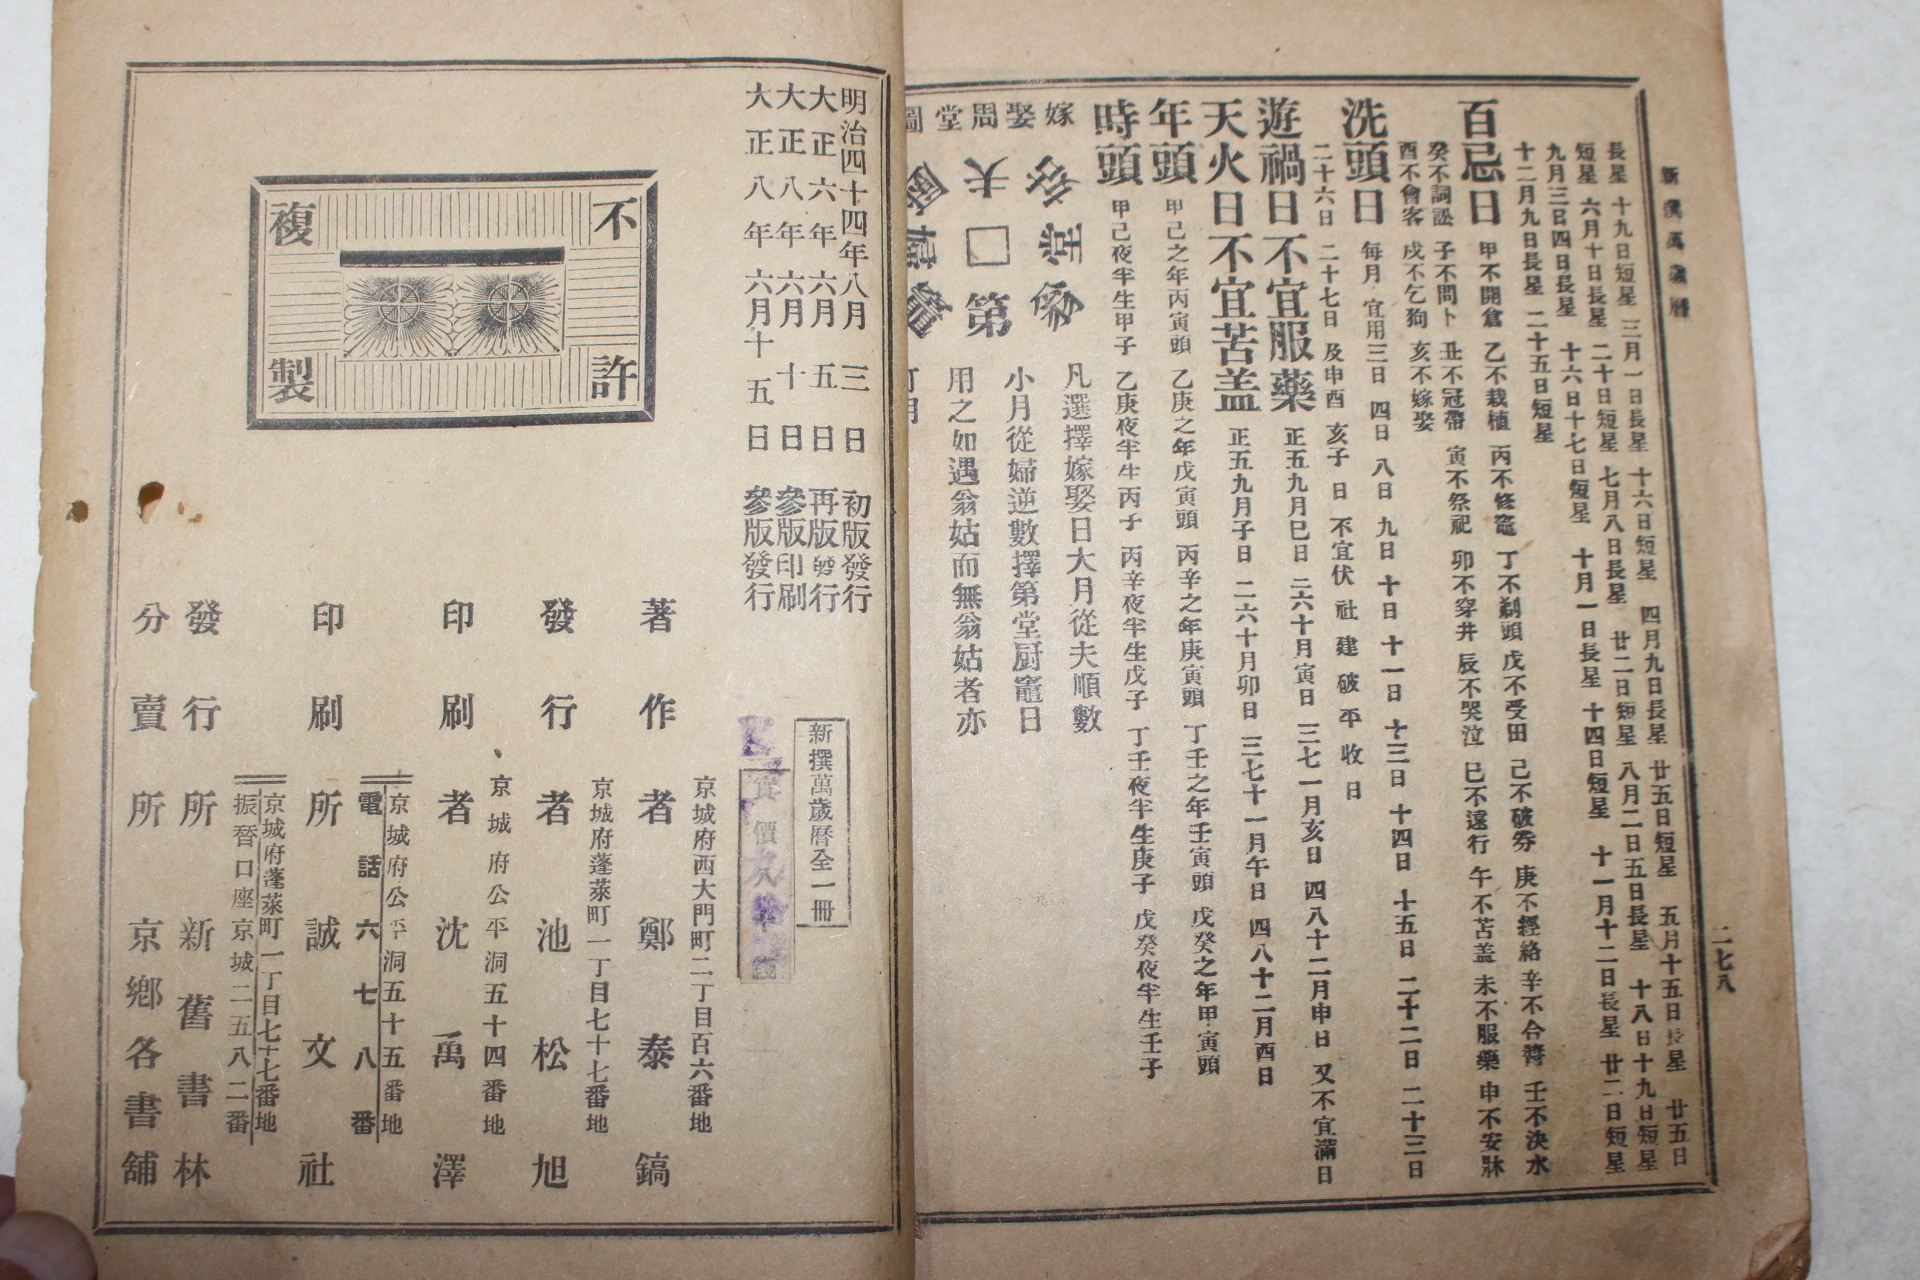 新撰萬歲曆
二七八
長星 十九日短星 三月一日長星 十六日短星 四月九日長星 廿五日短星 五月十五日長星 廿五日
短星 六月十日長星 二十日短星 七月八日長星 廿二日短星 八月二日五日長星 十八日十九日短星
九月三日四日長星 十六日十七日短星 十月一日長星 十四日短星 十一月十二日長星 廿二日短星
十二月九日長星 二十五日短星
百忌日 甲不開倉 乙不栽植 丙不修竈 丁不剃頭 戊不受田 己不破券 庚不經絡 辛不合醬 壬不決水
癸不詞訟 子不問卜 丑不冠帶 寅不祭祀 卯不穿井 辰不哭泣 巳不遠行 午不苫盖 未不服藥 申不安牀
酉不會客 戌不乞狗 亥不嫁娶
洗頭日 每月 宜用三日 四日 八日 九日 十日 十一日 十三日 十四日 十五日 二十二日 二十三日
二十六日 二十七日 及申酉 亥子 日 不宜伏 社 建 破 平 收 日
遊禍日不宜服藥 正五九月巳日 二六十月寅日 三七一月亥日 四八十二月申日 又不宜滿日
天火日不宜苫盖 正五九月子日 二六十月卯日 三七十一月午日 四八十二月酉日
年頭 甲己之年丙寅頭 乙庚之年戊寅頭 丙辛之年庚寅頭 丁壬之年壬寅頭 戊癸之年甲寅頭
時頭 甲己夜半生甲子 乙庚夜半生丙子 丙辛夜半生戊子 丁壬夜半生庚子 戊癸夜半生壬子
嫁娶周堂圖
姑 堂 翁
夫 第
廚 竈
凡選擇嫁娶日大月從夫順數
小月從婦逆數擇第堂厨竈日
用之如遇翁姑而無翁姑者亦
可用
明治四十四年八月 三 日 初版發行
大正六年六月 五 日 再版發行
大正八年六月 十 日 參版印刷
大正八年六月十五日 參版發行
不許
複製
新撰萬歲曆全一冊
實價
京城府西大門町二丁目百六番地
著作者 鄭泰鎬
京城府蓬萊町一丁目七十七番地
發行者 池松旭
京城府公平洞五十四番地
印刷者 沈禹澤
京城府公平洞五十五番地
電話六七八番
印刷所 誠文社
京城府蓬萊町一丁目七十七番地
振替口座京城二五八二番
發行所 新舊書林
分賣所 京鄕各書舖